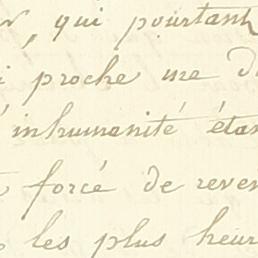 , qui pourtant
proche une d
inhumanité étan
forcé de reven
les plus heur